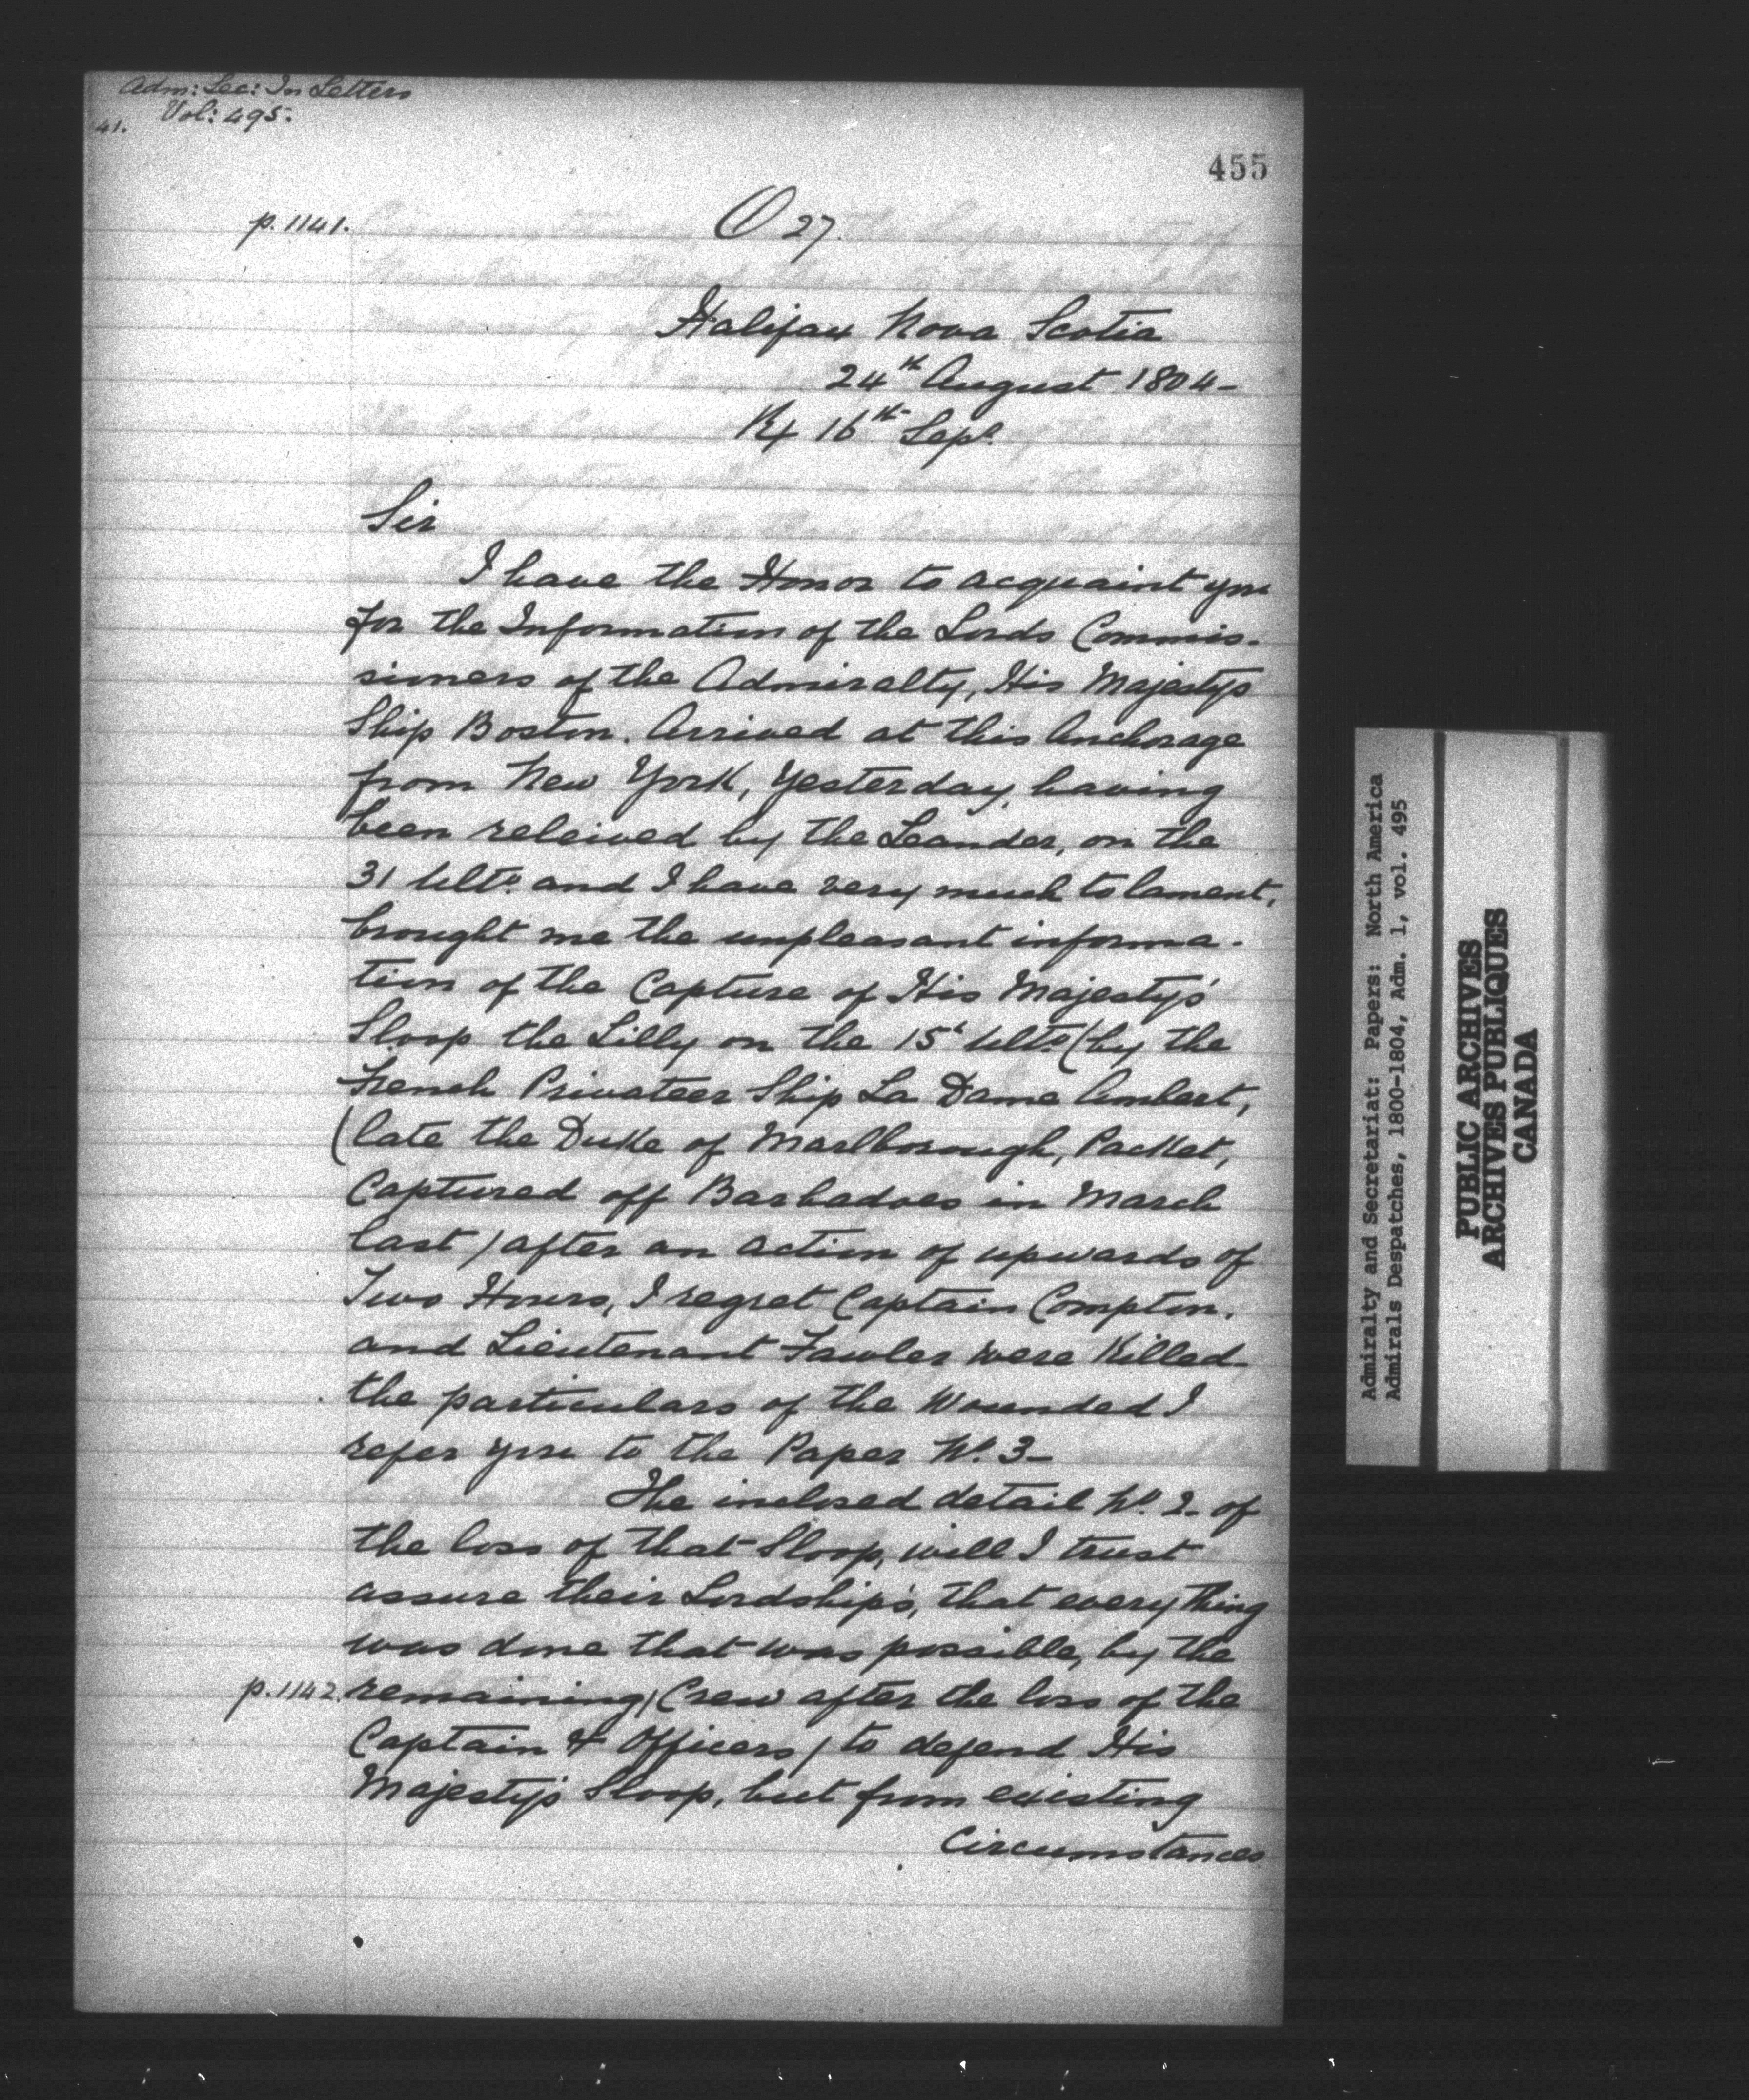 Adm: Sec: In Letters
Vol: 495.
41.
455
p. 1141.
27.
Halifax Nova Scotia
24th August 1804-
Rx 16th Sepr
Sir
I have the Honor to acquaint you
for the Information of the Lords Commis-
sioners of the Admiralty, His Majestys
Ship Boston. Arrived at this Anchorage
from New York, Yesterday, having
been releived by the Leander, on the
31 Ulto. and I have very much to lament,
brought me the unpleasant informa-
tion of the Capture of His Majesty's
Sloop the Lilly on the 15th Ulto. (by the
French Privateer Ship La Dame Ambert,
(late the Duke of Marlborough, Packet,
Captured off Barbadoes in March
last) after an action of upwards of
Two Hours, I regret Captain Compton,
and Lieutenant Fowler were Killed
the particulars of the Wounded I
refer you to the Paper No. 3-
The inclosed detail No. 2- of
the loss of that Sloop, will I trust
assure their Lordship's, that every thing
was done that was possible, by the
p. 1142. remaining (Crew after the loss of the
Captain & Officers) to defend His
Majesty's Sloop, but from existing
Circumstances
Admiralty and Secretariat: Papers: North America
Admirals Despatches, 1800-1804, Adm. 1, vol. 495
PUBLIC ARCHIVES
ARCHIVES PUBLIQUES
CANADA